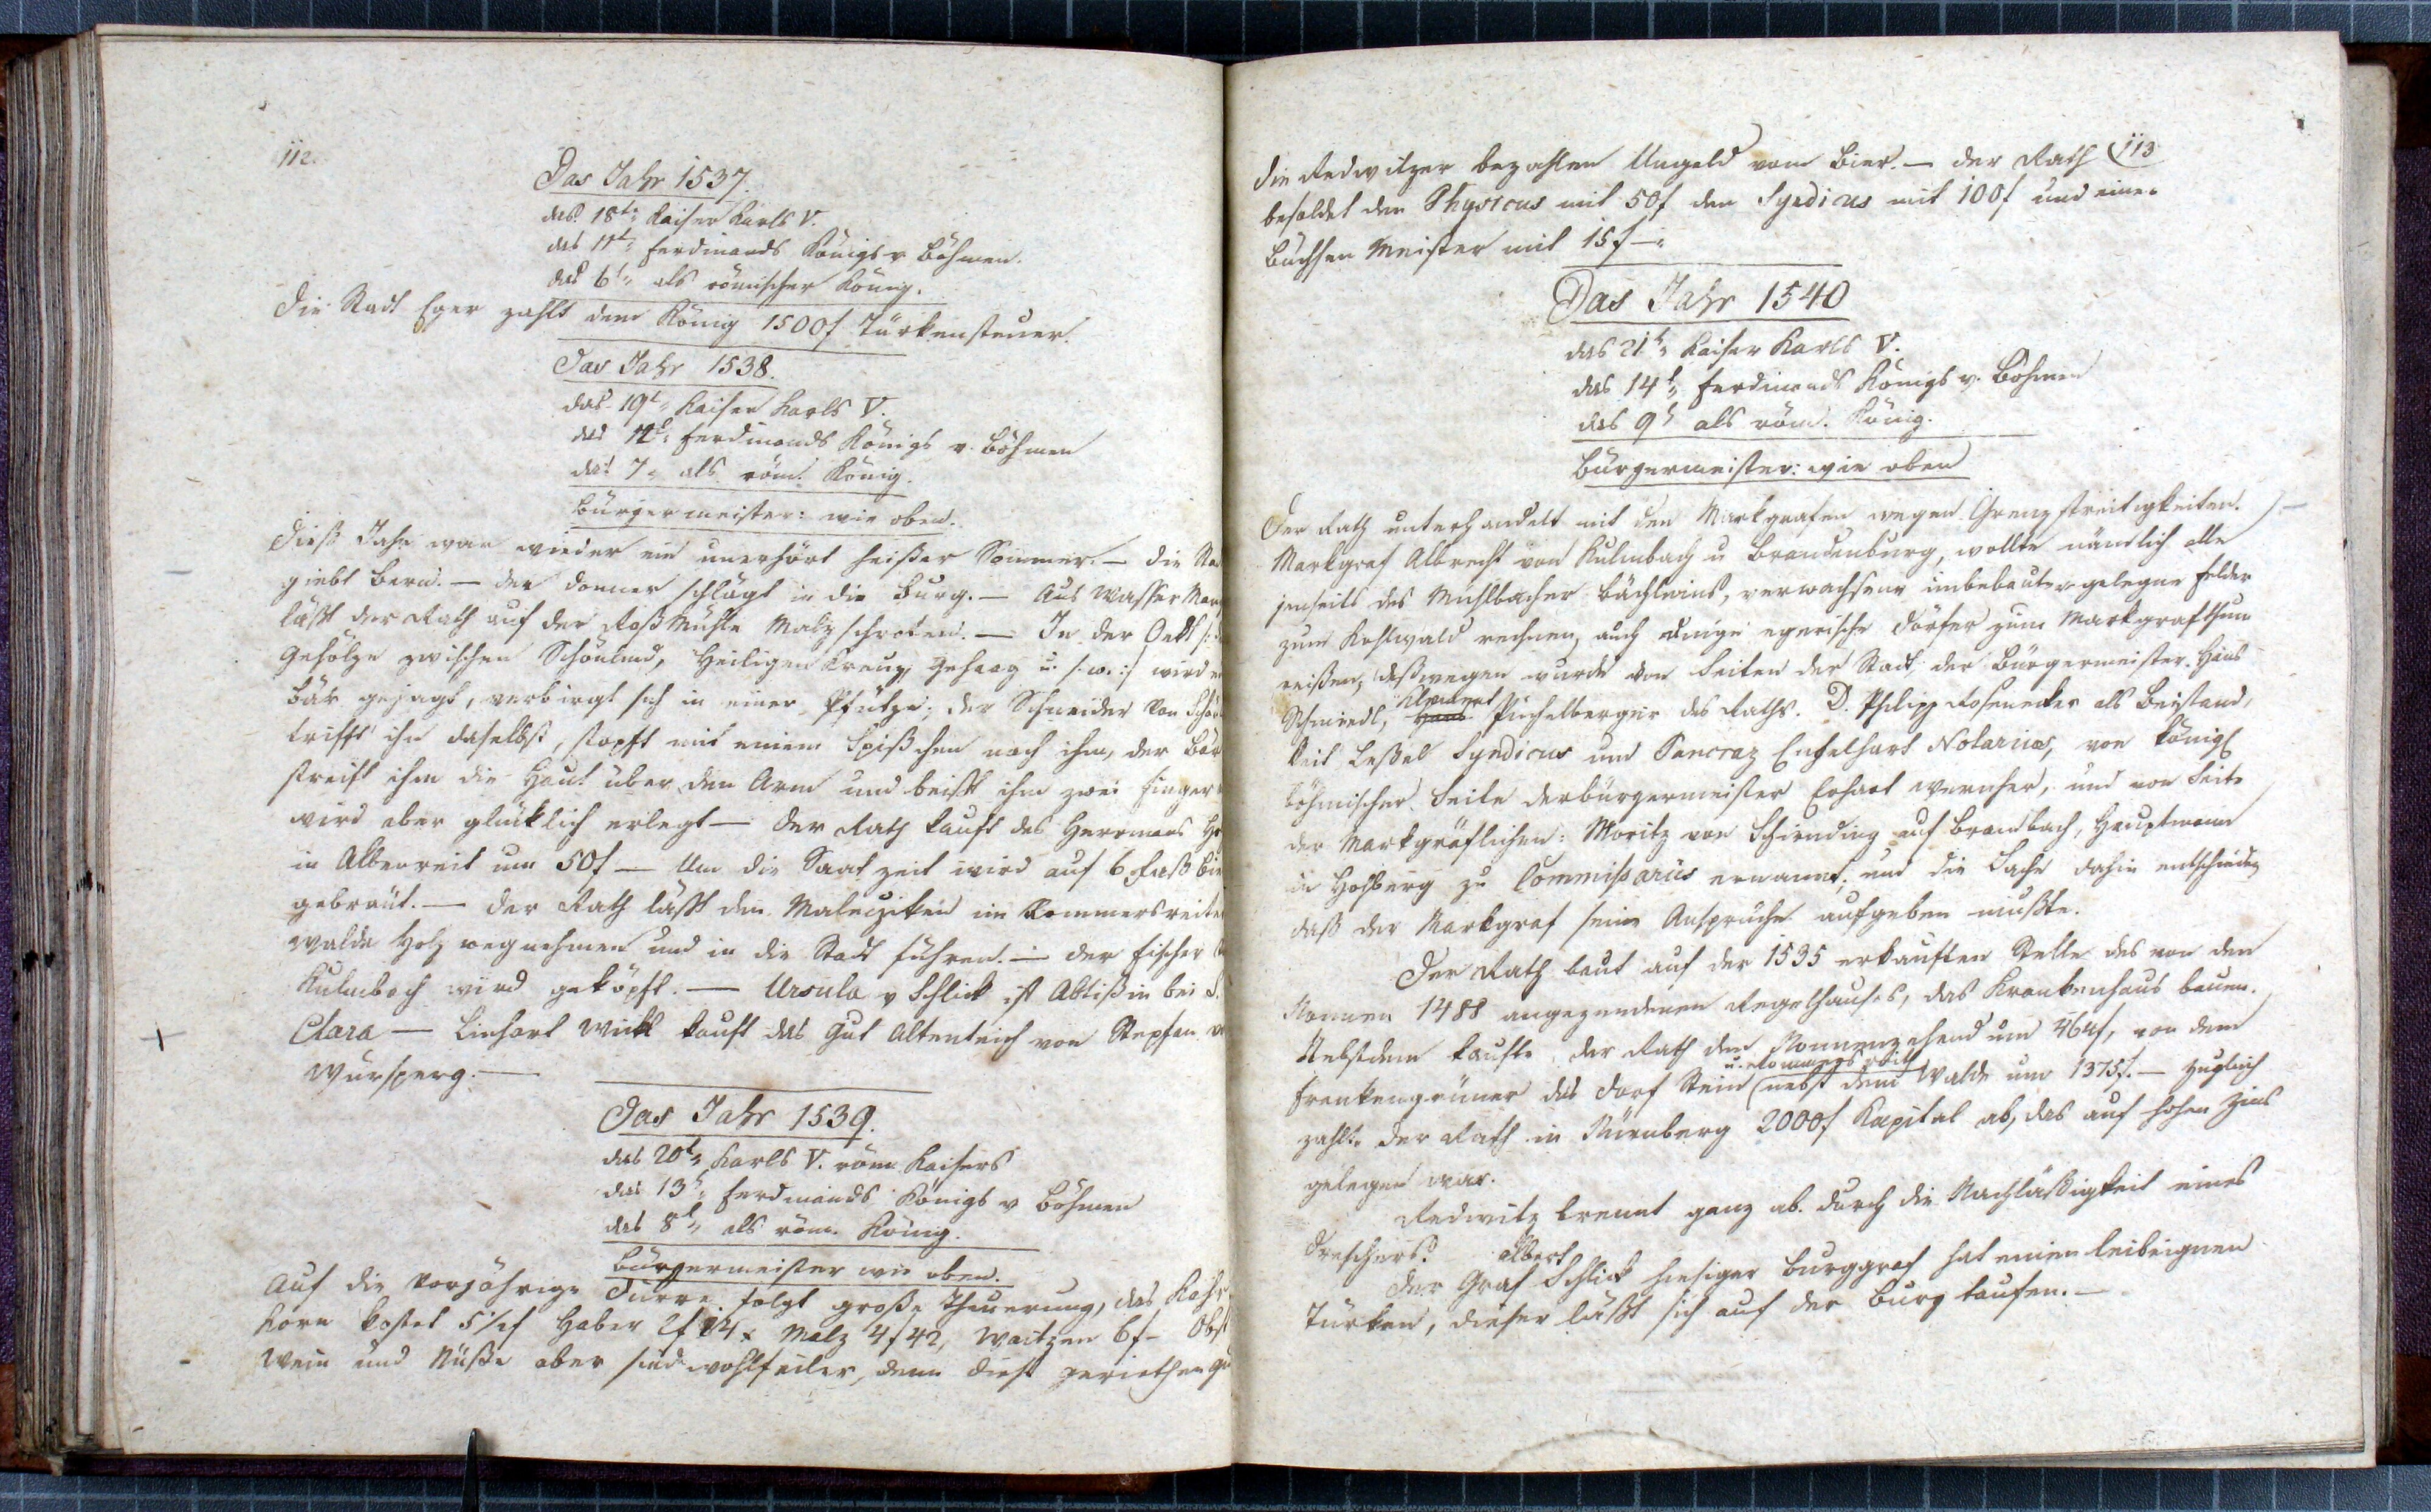 112.
Das Jahr 1537.
das 18t= Kaiser Karls V.
das 11t= Ferdinands Königs v Böhmen.
das 6t= als römischer König.
Die Stadt Eger zahlt dem König 1500f Türkensteuer.
Das Jahr 1538.
das 19t= Kaiser Karls V.
das 12t= Ferdinands Königs v. Böhmen
das 7= als röm. König.
Bürgermeister: wie oben.
Dieß Jahr war wieder ein unerhört heißer Sommer. — Die
giebt — der Donner schlägt in die Burg. — Aus Wasser
läßt der Rath auf der Roßmühle Malz schroten. — In der Oedt
Gehölze zwischen Schönlind, Heiligen Kreuz, Gehaag u. s. w. :/ wird
Bär gejagt, verbirgt sich in einer Pfütze; der Schneider von
trifft ihn daselbst, stopft mit einem Spißchen nach ihm, der Bär
streift ihm die Haut über den Arm und beißt ihm zwei Finger
wird aber glücklich erlegt — Der Rath kauft des Herrmans
in Albenreit um 50f — Um die Saatzeit wird auf 6 Faß
gebräut. — der Rath läßt den im Kommersreite
Walde Holz wegnehmen und in die Stadt führen. — der Fischer
Kulmbach wird geköpft. — Ursula v Schlick ist Abtißin bei S.
Clara — Linhart kauft das Gut Altenteich von Stephan
Wursperg. —
Das Jahr 1539.
das 20t= Karls V. röm Kaisers
das 13t= Ferdinands Königs v Böhmen
das 8t= als röm. König.
Bürgermeister wie oben.
Auf die vorjährige Dürre folgt große Theuerung, das
Korn kostet 5½f Haber 2f 24x Malz 4f 42, Waitzen 6f — Obst
Wein und Nüße aber sind wohlfeiler, denn dieß geriethen
113
die Redwitzer bezahlen Ungeld vom Bier. — der Rath
besoldet den Physicus mit 50f den Syndicus mit 100f und einen
Büchsen Meister mit 15f —
Das Jahr 1540
das 21t= Kaiser Karls V.
das 14t= Ferdinands Königs v. Böhmen
das 9t als röm. König.
Bürgermeister: wie oben
Der Rath unterhandelt mit den Markgrafen wegen Grenzstreitigkeiten. —
Markgraf Albrecht von Kulmbach u Brandenburg, wollte nämlich alle
jenseits des Mühlbacher Bächleins, verwachsene unbebaute gelegne Felder
zum Kohlwald rechnen, auch einige egerische Dörfer zum Markgrafthum
reißen, deßwegen wurde von Seiten der Stadt der Bürgermeister Hans
Schmiedl, Hans Puchelberger des Raths. D. Philipp Rosenecker als Beistand,
Veit Leßel Syndicus und Pancraz Engelhart Notarius, von königl
böhmischer Seite der Bürgermeister Erhart Wernher, und von Seite
der Markgräflichen: Moritz von Schirnding auf Brambach, Hauptmann
in Hohberg zu Commissarius ernannt; und die Sache dahin entschieden
daß der Markgraf seine Ansprüche aufgeben mußte.
Der Rath baut auf der 1535 erkauften Stelle des von den
Nonnen 1488 angezundenen Regelhauses, das Krankenhaus bauen.
Nebstdem kaufte der Rath den Nonnenzehend um 464f, von dem
Frankengrüner das Dorf Stein (nebst dem Walde um 1375f. — zugleich
zahlte der Rath in Nürnberg 2000f Kapital ab, das auf hohen Zins
gelegen war.
Redwitz brennt ganz ab. durch die Nachläßigkeit eines
Dreschers.
Der Graf Albert Schlick hiesiger Burggraf hat einen leibeignen
Türken, dieser läßt sich auf der Burg taufen. —